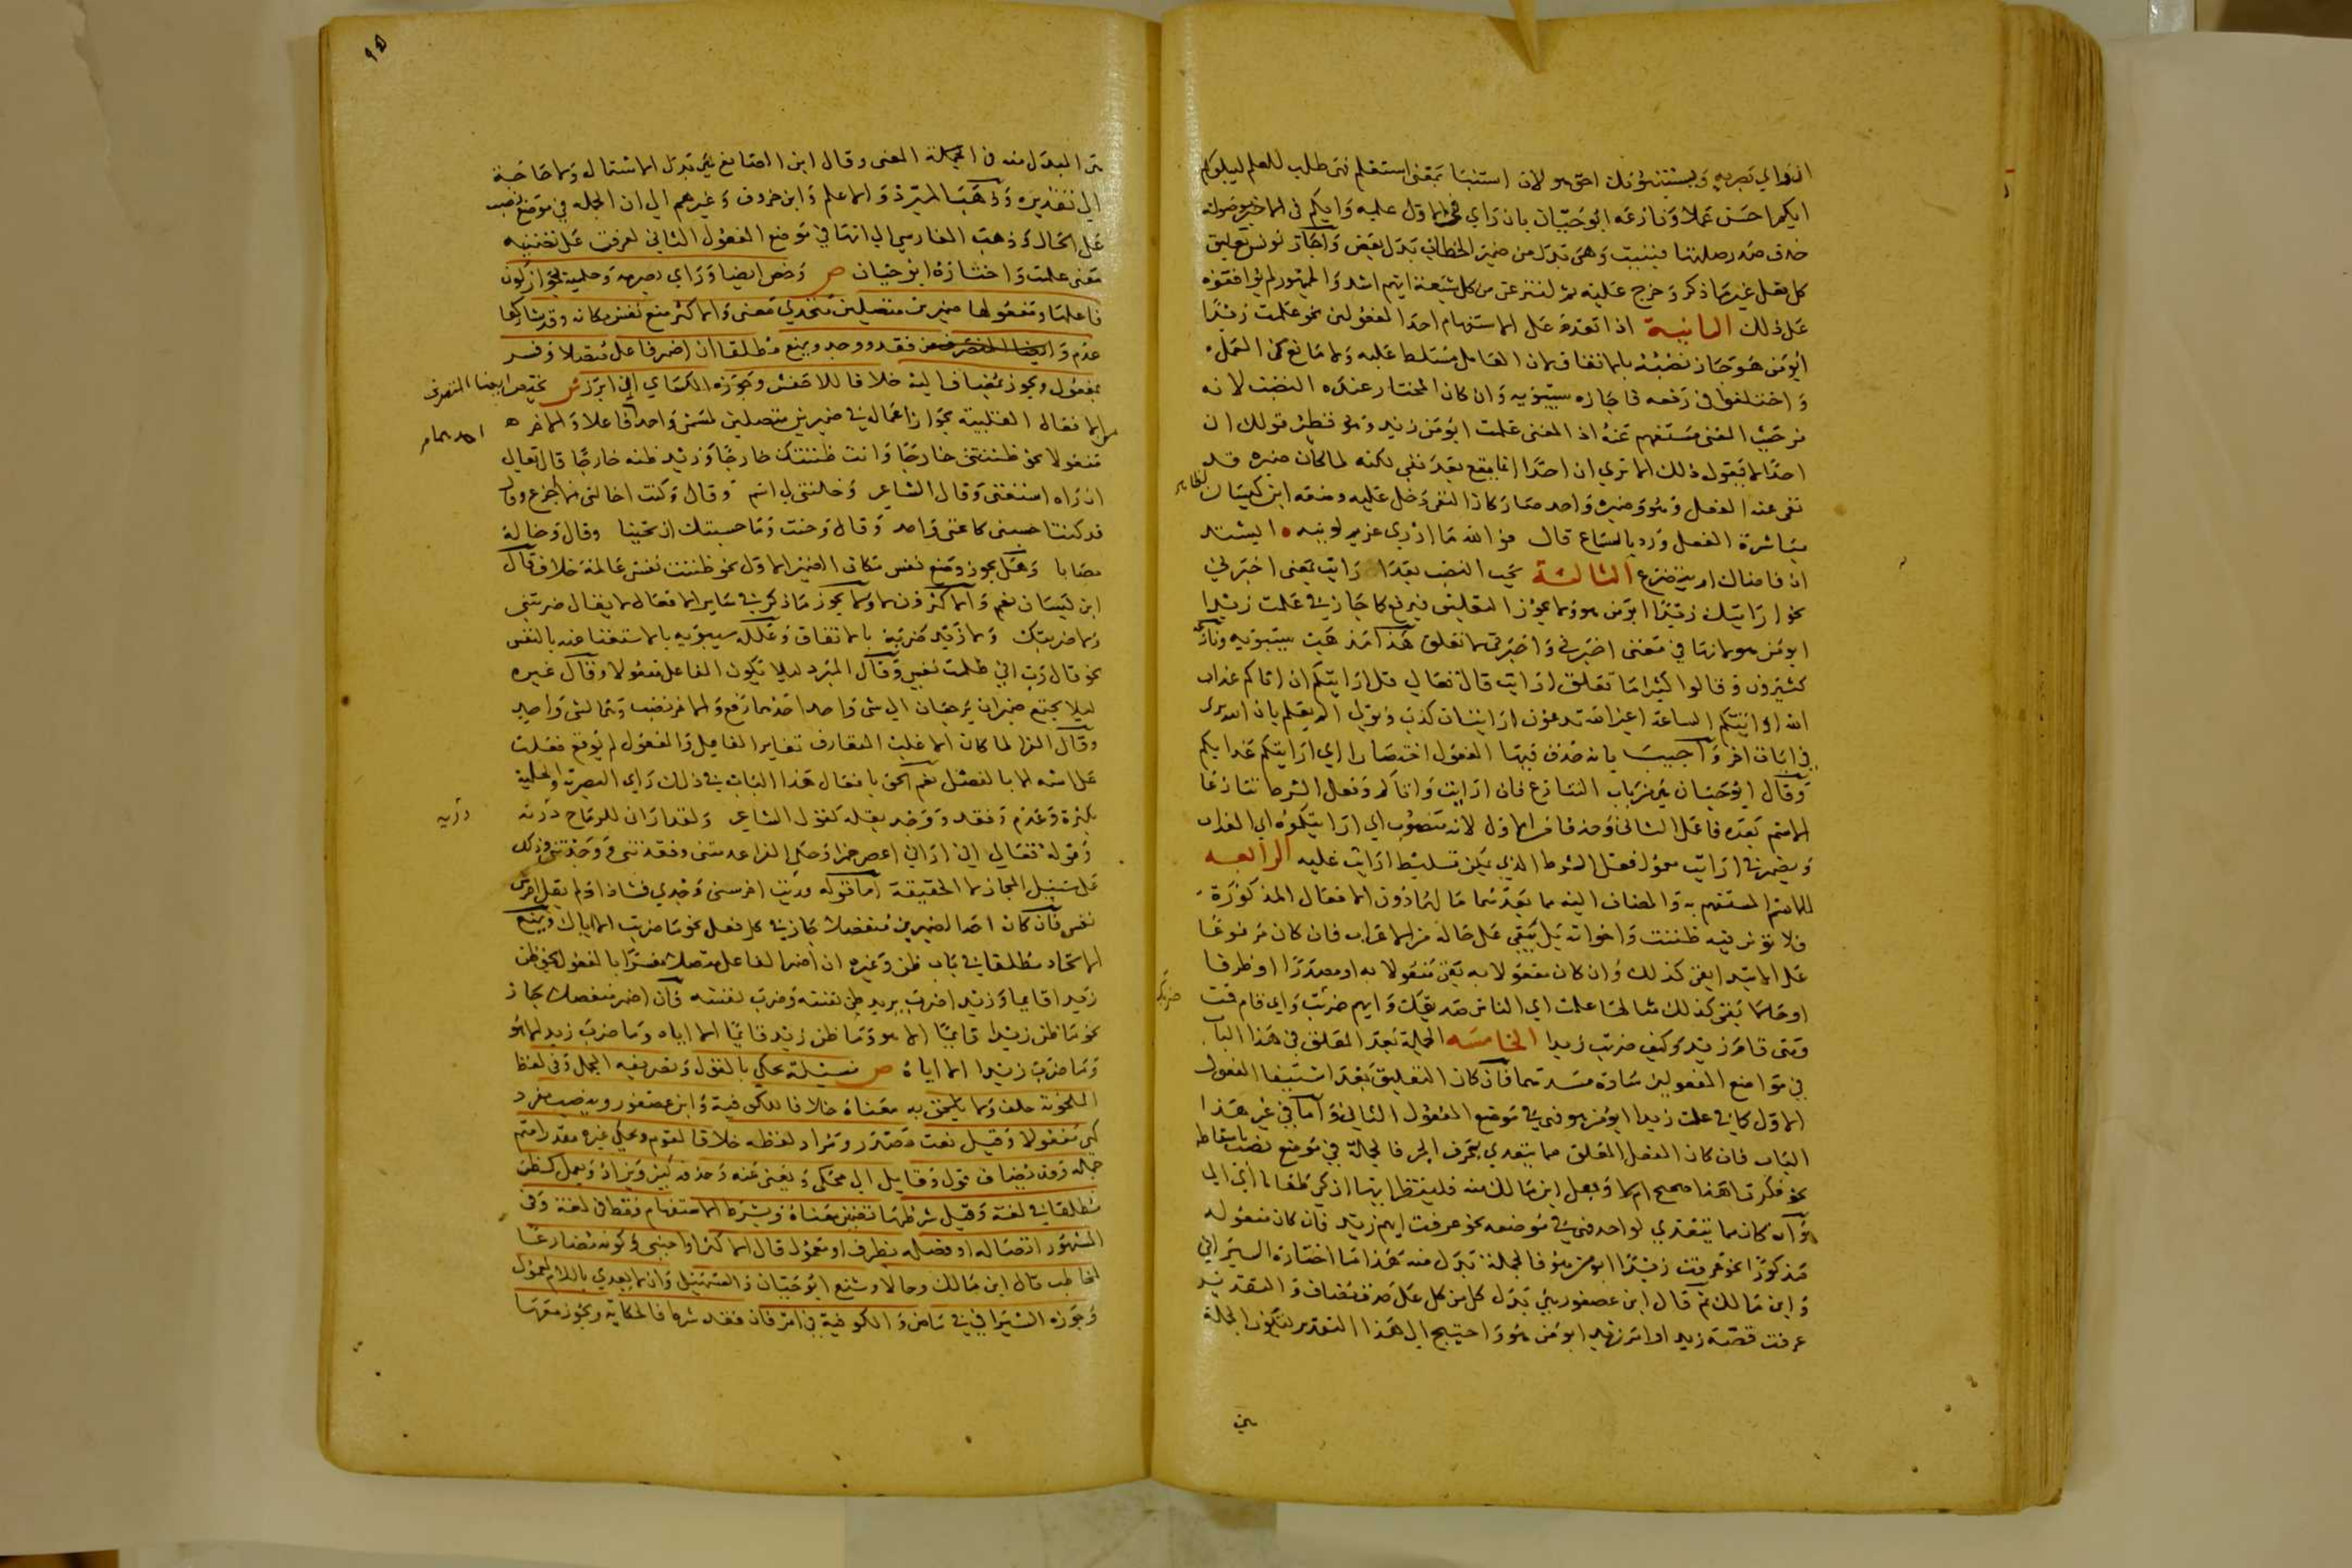 اي رأي بصرية ويستنبئونك احق هو لان استنبا بمعنى استعلم فهى طلب للعلم ليبلوكم
ايكم احسن عملا ونازعه ابو حيان بان رأي في الاول علمية وايكم في الاخير موصولة
حذف صدر صلتها فبنيت وهى بدل من ضمير الخطاب بدل بعض واجاز يونس تعليق
كل فعل غير ما ذكر وخرج عليه ثم لننزعن من كل شيعة ايهم اشد والجمهور لم يوافقوه
على ذلك الثانية اذا تقدم على الاستفهام احد المفعولين نحو علمت زيدا
ابو من هو جاز نصبه بالاتفاق لان العامل مسلط عليه ولا مانع من العمل
واختلفوا في رفعه فاجازه سيبويه وان كان المختار عنده النصب لانه
من حيث المعنى مستفهم عنه اذ المعنى علمت ابو من زيد وهو نظير قولك ان
احدا لا يقول ذلك الا تري ان احدا انما يقع بعد نفي لكنه لما كان ضميره قد
نفى عنه الفعل وهو وضميره واحد صار كان النفى دخل عليه ومنعه ابن كيسان
مباشرة الفعل ورد بالسماع قال فوالله ما ادري غريم لويته ايشتد
ان قاضاك ام يتضرع الثالثة يجب النصب بعد ارأيت بمعنى اخبرني
نحو ارايتك زيدا ابو من هو ولا يجوز التعليق فيرفع كما جاز في علمت زيدا
ابو من هو لانها في معنى اخبرني واخبرني لا تعلق هذا مذهب سيبويه ونازعه
كثيرون وقالوا كثيرا ما تعلق ارايت قال تعالي قل ارايتكم ان اتاكم عذاب
الله او اتتكم الساعة اغير الله تدعون ارايت ان كذب وتولي الم يعلم بان الله يرى
في ايات اخر واجيب بانه حذف فيها المفعول اختصارا اي ارايتكم عذابكم
وقال ابو حيان هي من باب التنازع فان ارايت واتاكم وفعل الشرط تنازعا
الاسم بعده فاعمل الثاني وحذف من الاول لانه منصوب اي ارايتكموه اي العذاب
ويضمر في ارايت معمول فعل الشرط الذي يمكن تسليط ارايت عليه الرابعة
للاسم المستفهم به والمضاف اليه مما بعدهما ما لهما دون الافعال المذكورة
فلا تؤثر فيه ظننت واخواته بل يبقى على حاله من الاعراب فان كان مرفوعا
على الابتدا بقى كذلك وان كان مفعولا به بقى مفعولا به او مصدرا او ظرفا
او حالا بقى كذلك مثالها علمت اي الناس صديقك وايهم ضربت واي قيام قمت
ومتى قام زيد وكيف ضربت زيدا الخامسة الجملة بعد المعلق في هذا الباب
في موضع المفعولين سادة مسدهما فان كان التعليق بعد استيفا المفعول
الاول كما في علمت زيدا ابو من هو فهي في موضع المفعول الثاني واما في غير هذا
الباب فان كان الفعل المعلق مما يتعدي بحرف الجر فالجملة في موضع نصب باسقاطه
نحو فكرت اهذا صحيح ام لا وجعل ابن مالك منه فلينظر ايها ازكى طعاما اي الي
وان كان مما يتعدي لواحد فهي في موضعه نحو عرفت ايهم زيد فان كان مفعوله
مذكورا نحو عرفت زيدا ابو من هو فالجملة بدل منه هذا ما اختاره السيرافي
وابن مالك ثم قال ابن عصفور هي بدل كل من كل على حذف مضاف والتقدير
عرفت قصة زيد او امر زيد ابو من هو واحتيج الى هذا التقدير لتكون الجملة
هي المبدل منه في المعنى وقال ابن الصايغ هي بدل اشتمال ولا حاجة
الي تقديره وذهب المبرد والاعلم وابن خروف وغيرهم الي ان الجملة في موضع نصب
على الحال وذهب الفارسي الي انها في موضع المفعول الثاني لعرفت على تضمينه
معنى علمت واختاره ابو حيان ص وخص ايضا ورأي بصرية وحلمية بجواز كون
فاعلها ومفعولها ضميرين متصلين متحدي معنى والاكثر منع نفس مكانه وقد شاركها
عدم وفقد ووجد ويمنع مطلقا ان اضمر فاعل متصلا وفسر
بمفعول ويجوز بمضاف اليه خلافا للاخفش وجوزه الكساي ان ابرز ش تختص ايضا المتصرف
من الافعال القلبية بجواز اعمالها في ضميرين متصلين لمسمى واحد فاعلا والاخر
مفعولا نحو ظننتني خارجا وانت ظننتك خارجا وزيد ظنه خارجا قال تعالي
ان راه استغنى وقال الشاعر وخلتني لي اسم وقال وكنت اخالني لا اجزع وقال
قد كنت احسبني كاغنى واحد وقال وحنت وما حسبتك ان تحينا وقال وخاله
مصابا وهل يجوز وضع نفس مكان الضمير الاول نحو ظننت نفسي عالمة خلاف قال
ابن كيسان نعم والاكثرون لا ولا يجوز ما ذكر في ساير الافعال لا يقال ضربتني
ولا ضربتك ولا زيد ضربه بالاتفاق وعلله سيبويه بالاستغناء عنه بالنفس
نحو قال رب اني ظلمت نفسي وقال المبرد ليلا يكون الفاعل مفعولا وقال غيره
ليلا يجتمع ضميران يرجعان الي شى واحد احدهما رفع والاخر نصب وهما لشى واحد
وقال الفرا لما كان الاغلب المتعارف تغاير الفاعل والمفعول لم يوقع فعلت
على اسمه الا بالفصل نعم الحق بافعال هذا الباب في ذلك راي البصرية والحلمية
بكثرة وعدم وفقد ووجد بقلة كقول الشاعر ولقد اراني للرماح دريه
وقوله تعالي اني اراني اعصر خمرا وحكى الفرا عدمتني وفقدتني ووجدتني وذلك
على سبيل المجاز لا الحقيقة اما قوله ورثت اخرسني وجدي فشاذ اذ لم يقل اخرس
نفسي فان كان احد الضميرين منفصلا جاز في كل فعل نحو ما ضربت الا اياك ويمتنع
الاتحاد مطلقا في باب ظن وغيره ان اضمر الفاعل متصلا مفسرا بالمفعول نحو ظن
زيدا قايما وزيدا ضرب يريد ظن نفسه وضرب نفسه فان اضمر منفصلا جاز
نحو ما ظن زيدا قايما الا هو وما ظن زيد قايما الا اياه وما ضرب زيدا الا هو
وما ضرب زيد الا اياه ص مسئلة يحكي بالقول وتصريفه الجمل وفي لفظ
الملحونة خلف ولا يلحق به معناه خلافا للكوفية وابن عصفور وينصب مفرد
كهى مفعولا وقيل نعت مصدر ومراد لفظه خلافا لقوم ويحكى غيره مقدرا متم
جملة وقد يضاف قول وقايل الي محكى ويغنى عنه وحذفه كثير ويزاد ويعمل كظن
مطلقا في لغة وقيل شرطها تضمن معناه ويشرط الاستفهام فقط في لغة وفي
المشهور اتصاله او فصله بظرف او معمول قال الاكثر او اجنبي وكونه مضارعا
لمخاطب قال ابن مالك وحالا ومنع ابو حيان والسهيلي وان لا يعدي باللام لمعمول
وجوزه السيرافي في ماض والكوفية في امر فان فقد شرط فالحكاية ويجوز معها